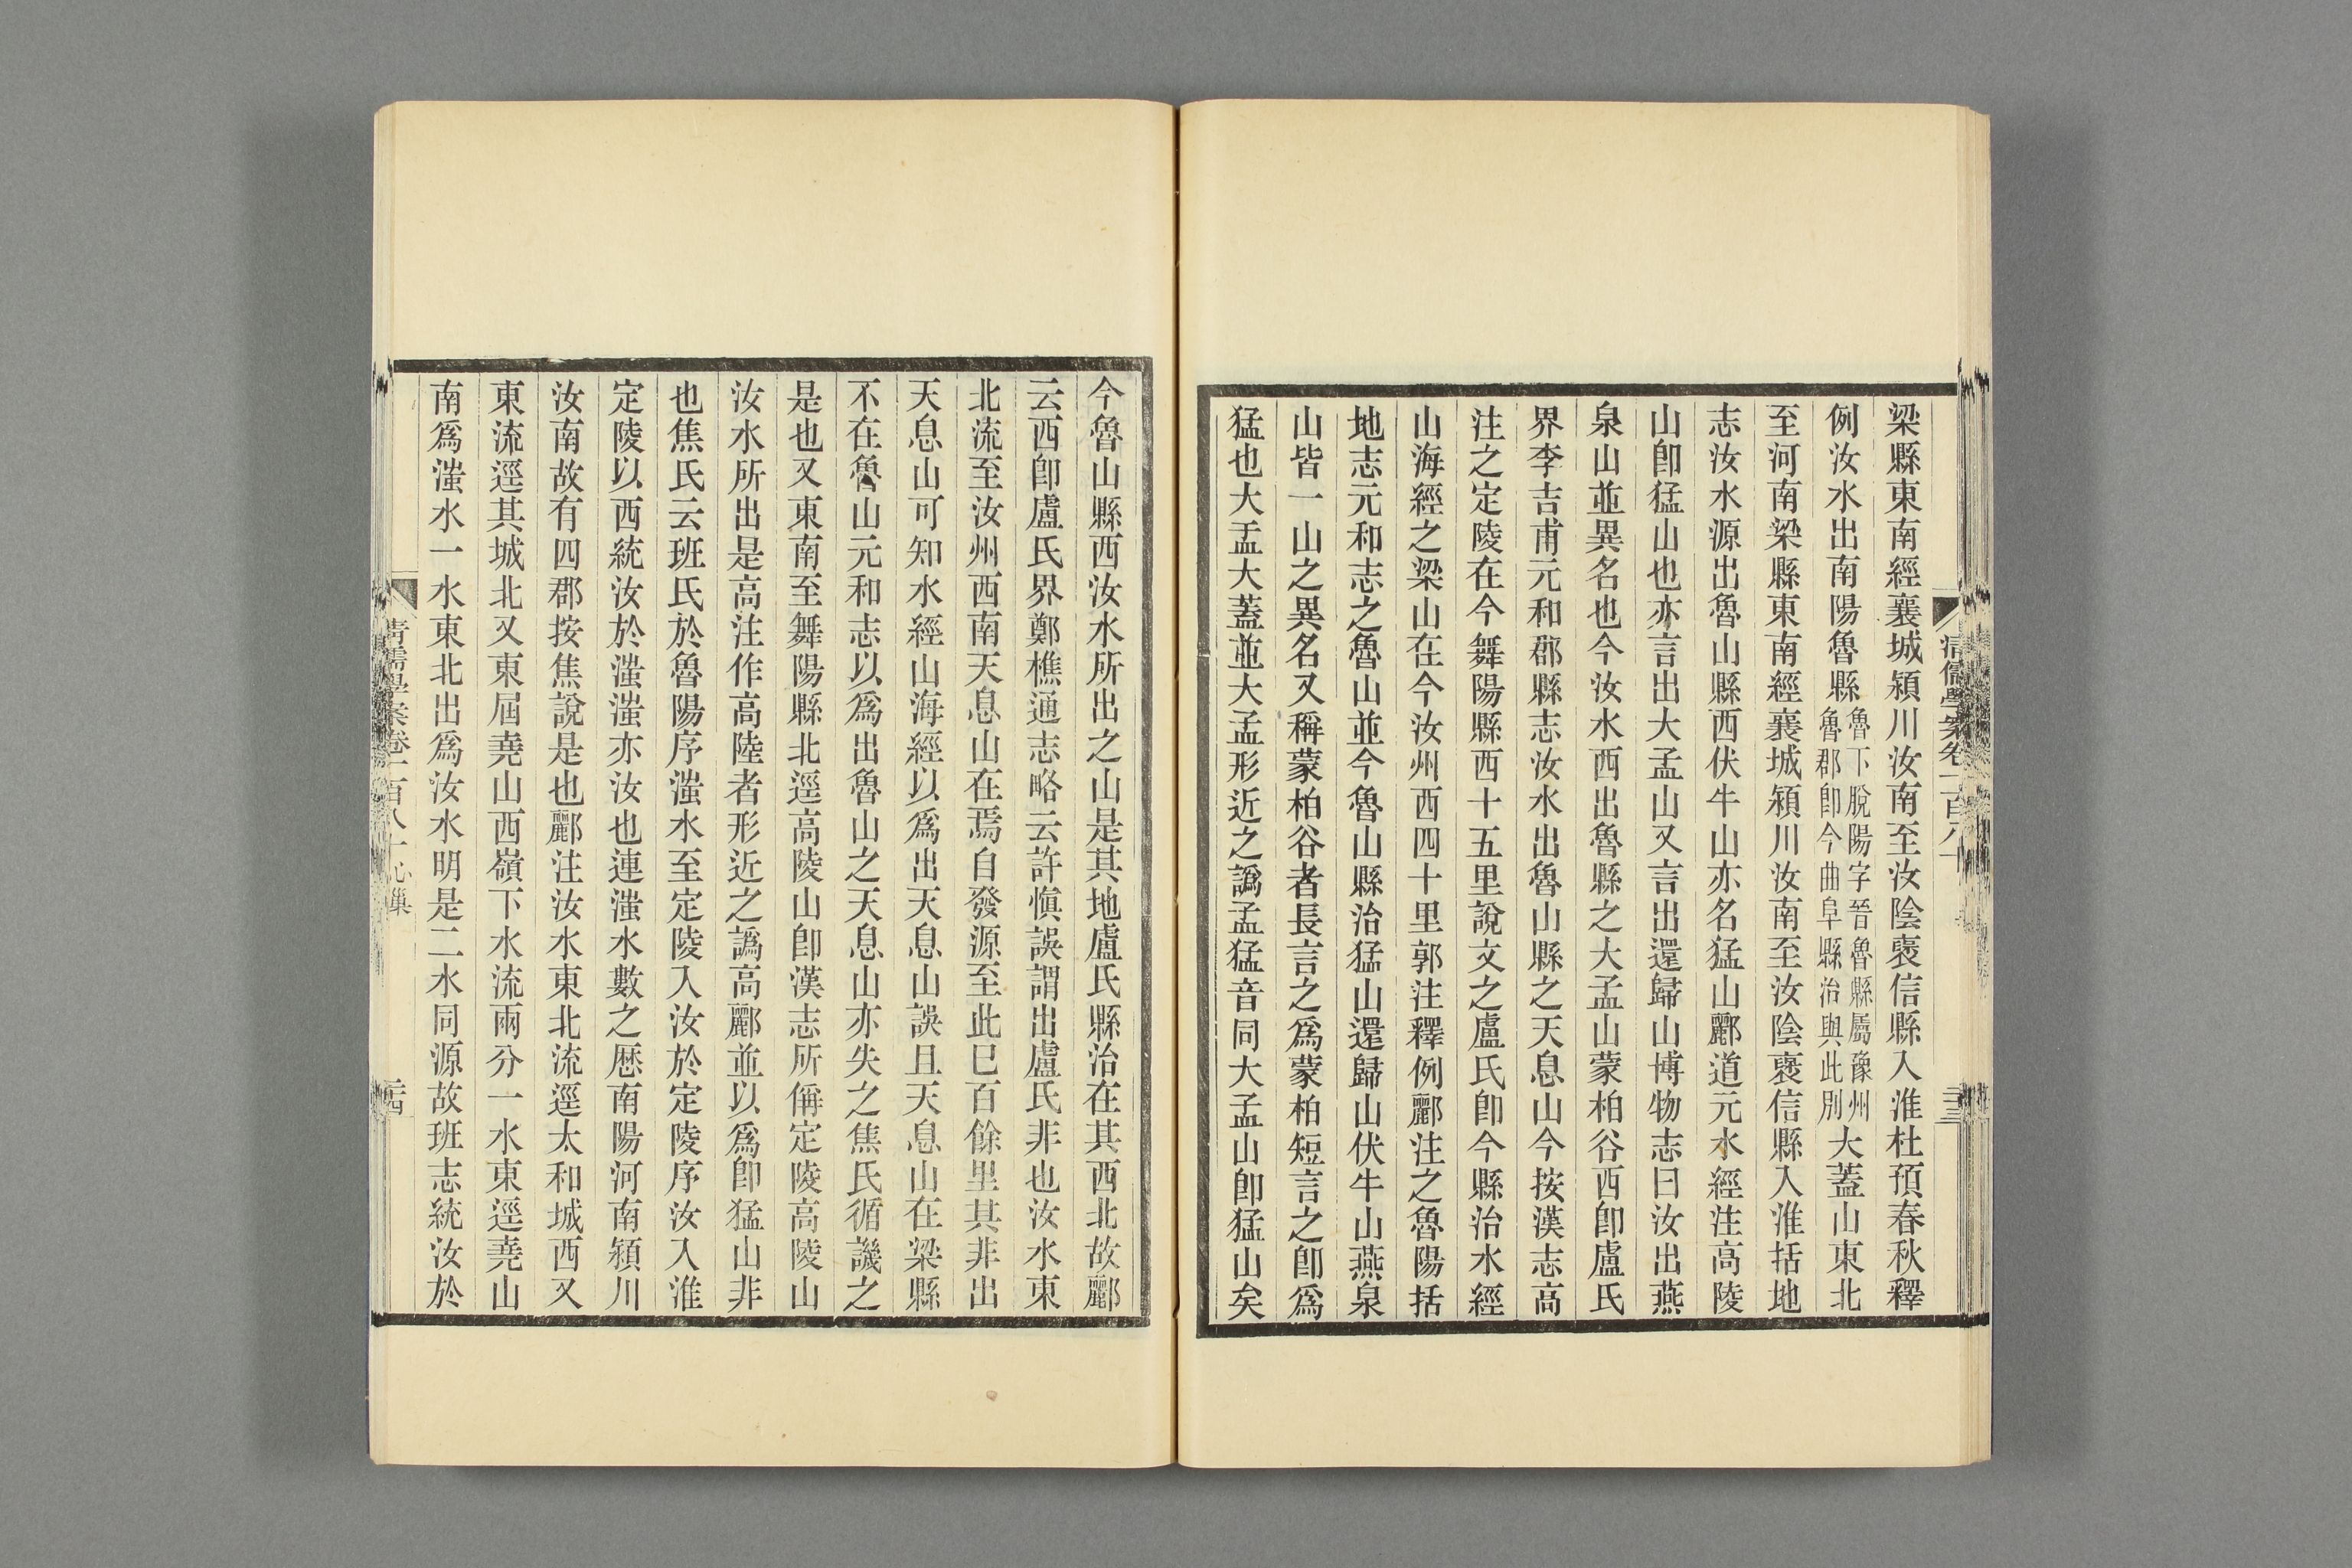 梁縣東南經襄城潁川汝南至汝陰褒信縣入淮杜預春秋釋
例汝水出南陽魯縣魯下脫陽字晉魯縣屬豫州魯郡卽今曲阜縣治與此別大蓋山東北
至河南梁縣東南經襄城潁川汝南至汝陰褒信縣入淮括地
志汝水源出魯山縣西伏牛山亦名猛山酈道元水經注高陵
山卽猛山也亦言出大孟山又言出還歸山博物志曰汝出燕
泉山並異名也今汝水西出魯縣之大孟山蒙柏谷西卽盧氏
界李吉甫元和郡縣志汝水出魯山縣之天息山今按漢志高
注之定陵在今舞陽縣西十五里說文之盧氏卽今縣治水經
山海經之梁山在今汝州西四十里郭注釋例酈注之魯陽括
地志元和志之魯山並今魯山縣治猛山還歸山伏牛山燕泉
山皆一山之異名又稱蒙柏谷者長言之爲蒙柏短言之卽爲
猛也大盂大蓋並大孟形近之譌孟猛音同大孟山卽猛山矣
今魯山縣西汝水所出之山是其地盧氏縣治在其西北故酈
云西卽盧氏界鄭樵通志略云許愼誤謂出盧氏非也汝水東
北流至汝州西南天息山在焉自發源至此已百餘里其非出
天息山可知水經山海經以爲出天息山誤且天息山在梁縣
不在魯山元和志以爲出魯山之天息山亦失之焦氏循譏之
是也又東南至舞陽縣北逕高陵山卽漢志所偁定陵高陵山
汝水所出是高注作高陸者形近之譌高酈並以爲卽猛山非
也焦氏云班氏於魯陽序滍水至定陵入汝於定陵序汝入淮
定陵以西統汝於滍滍亦汝也連滍水數之厯南陽河南潁川
汝南故有四郡按焦說是也酈注汝水東北流逕太和城西又
東流逕其城北又東屆堯山西嶺下水流兩分一水東逕堯山
南爲滍水一水東北出爲汝水明是二水同源故班志統汝於
清儒學案卷一百八十心巢